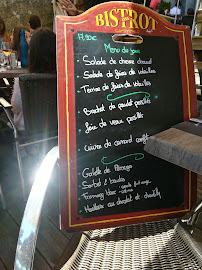 BISTROT
Menu du jour
Salade de chèvre chaud
Salade de foies de volailles
Terrine de foies de volailles
Brochet de poulet persillés
foie de veau persillé
Cuisse de canard confite
Sorbet 2 boules
Moelleux au chocolat et chantilly